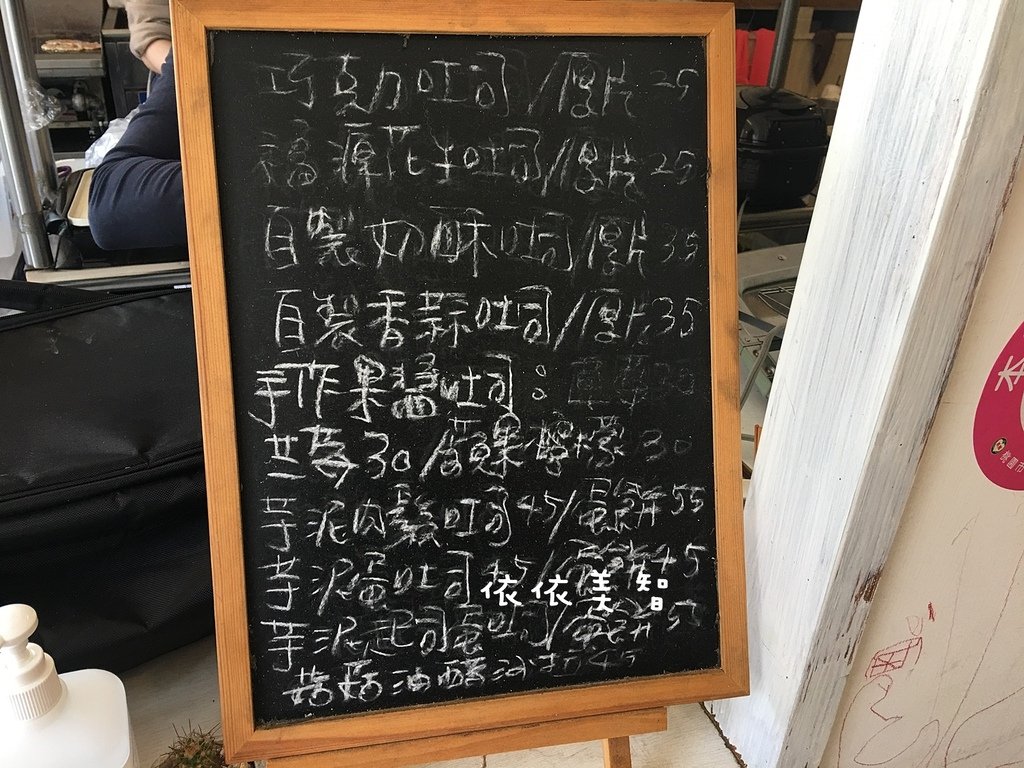 巧克力吐司/厚片 25
福源花生吐司/厚片 25
自製奶酥吐司/厚片 35
自製香蒜吐司/厚片 35
手作果醬吐司: 草莓30
芒果30/蘋果檸檬 30
芋泥肉鬆吐司 45/蛋餅 55
芋泥蛋吐司 45/蛋餅 45
依依美智
芋泥起司蛋吐司/蛋餅 55
菇菇油醋沙拉 45
本
桃園市